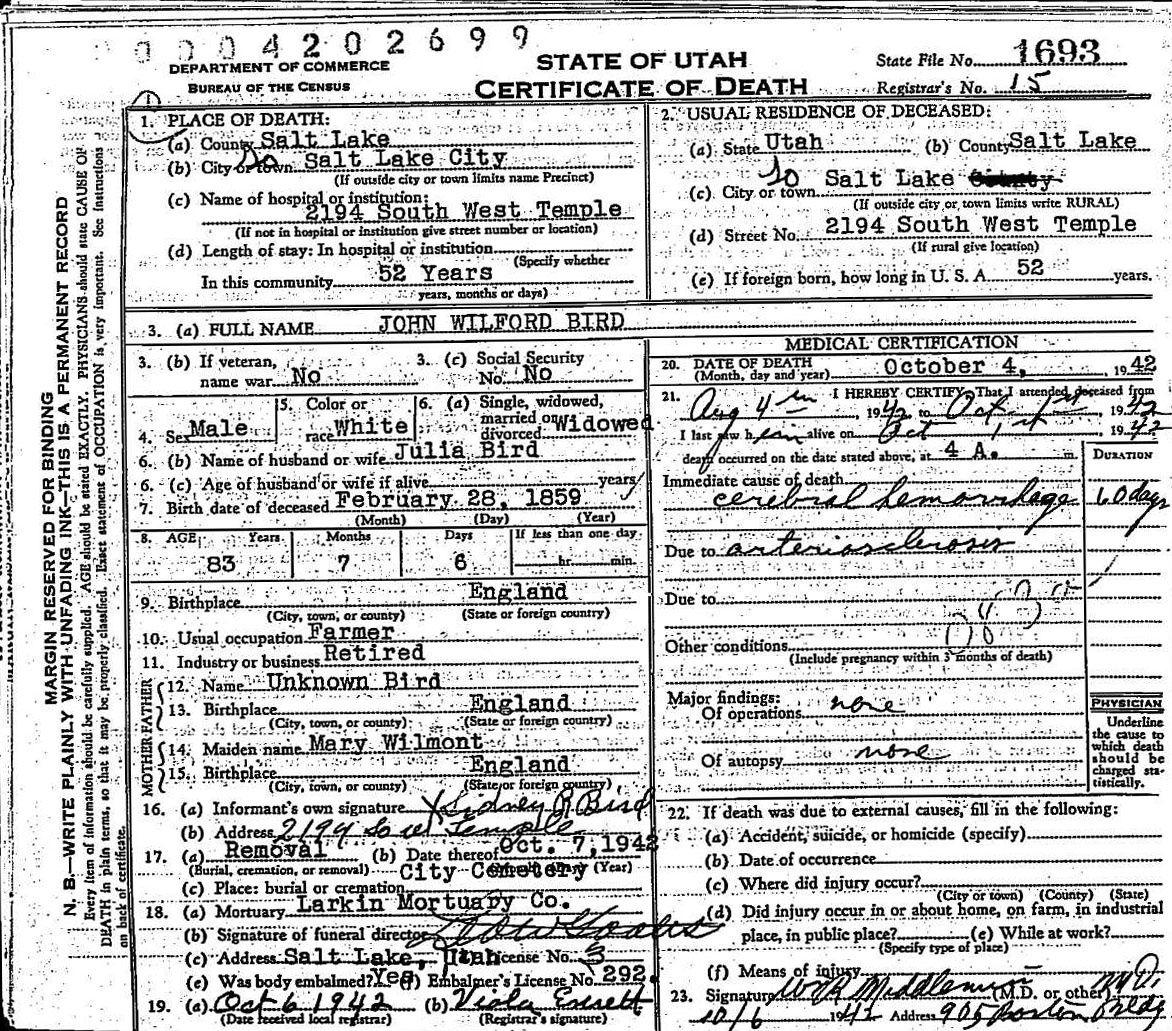 0004202699
DEPARTMENT OF COMMERCE
BUREAU OF THE CENSUS
STATE OF UTAH
CERTIFICATE OF DEATH
State File No. 1693
Registrar's No. 15
MARGIN RESERVED FOR BINDING
N. B.—WRITE PLAINLY WITH UNFADING INK—THIS IS A PERMANENT RECORD
Every item of information should be carefully supplied. AGE should be stated EXACTLY. PHYSICIANS should state CAUSE OF
DEATH in plain terms, so that it may be properly classified. Exact statement of OCCUPATION is very important. See Instructions
on back of certificate.
1. PLACE OF DEATH:
(a) County Salt Lake
(b) City or town So Salt Lake City
(If outside city or town limits name Precinct)
(c) Name of hospital or institution:
2194 South West Temple
(If not in hospital or institution give street number or location)
(d) Length of stay: In hospital or institution
(Specify whether
In this community 52 Years
years, months or days)
2. USUAL RESIDENCE OF DECEASED:
(a) State Utah (b) County Salt Lake
(c) City or town So Salt Lake County
(If outside city or town limits write RURAL)
(d) Street No. 2194 South West Temple
(If rural give location)
(e) If foreign born, how long in U. S. A. 52 years.
3. (a) FULL NAME JOHN WILFORD BIRD
3. (b) If veteran, name war No
3. (c) Social Security No. No
4. Sex Male
5. Color or race White
6. (a) Single, widowed, married or divorced Widowed
6. (b) Name of husband or wife Julia Bird
6. (c) Age of husband or wife if alive years
7. Birth date of deceased February 28, 1859
(Month) (Day) (Year)
8. AGE Years Months Days If less than one day
83 7 6 hr. min.
9. Birthplace England
(City, town, or county) (State or foreign country)
10. Usual occupation Farmer
11. Industry or business Retired
FATHER
12. Name Unknown Bird
13. Birthplace England
(City, town, or county) (State or foreign country)
MOTHER
14. Maiden name Mary Wilmont
15. Birthplace England
(City, town, or county) (State or foreign country)
16. (a) Informant's own signature X Sidney R Bird
(b) Address 2194 So West Temple
17. (a) Removal (b) Date thereof Oct. 7, 1942
(Burial, cremation, or removal) (Year)
City Cemetery
(c) Place: burial or cremation
18. (a) Mortuary Larkin Mortuary Co.
(b) Signature of funeral director
(c) Address Salt Lake, Utah License No. 3
(e) Was body embalmed? Yes (f) Embalmer's License No. 292.
19. (a) Oct 6 1942 (b) Viola
(Date received local registrar) (Registrar's signature)
MEDICAL CERTIFICATION
20. DATE OF DEATH October 4, 1942
(Month, day and year)
21. I HEREBY CERTIFY, That I attended deceased from
Aug 4th 1942 to Oct 1st 1942
I last saw him alive on Oct 1st 1942
death occurred on the date stated above, at 4 A. m
DURATION
Immediate cause of death
cerebral hemorrhage 60 days
Due to arteriosclerosis
Due to
Other conditions
(Include pregnancy within 3 months of death)
Major findings:
Of operations none
Of autopsy none
PHYSICIAN
Underline
the cause to
which death
should be
charged sta-
tistically.
22. If death was due to external causes, fill in the following:
(a) Accident, suicide, or homicide (specify)
(b) Date of occurrence
(c) Where did injury occur?
(City or town) (County) (State)
(d) Did injury occur in or about home, on farm, in industrial
place, in public place? (e) While at work?
(Specify type of place)
(f) Means of injury
23. Signature W R Middlemiss M.D.
(M.D. or other)
10/6 1942 Address 905 Boston Bldg